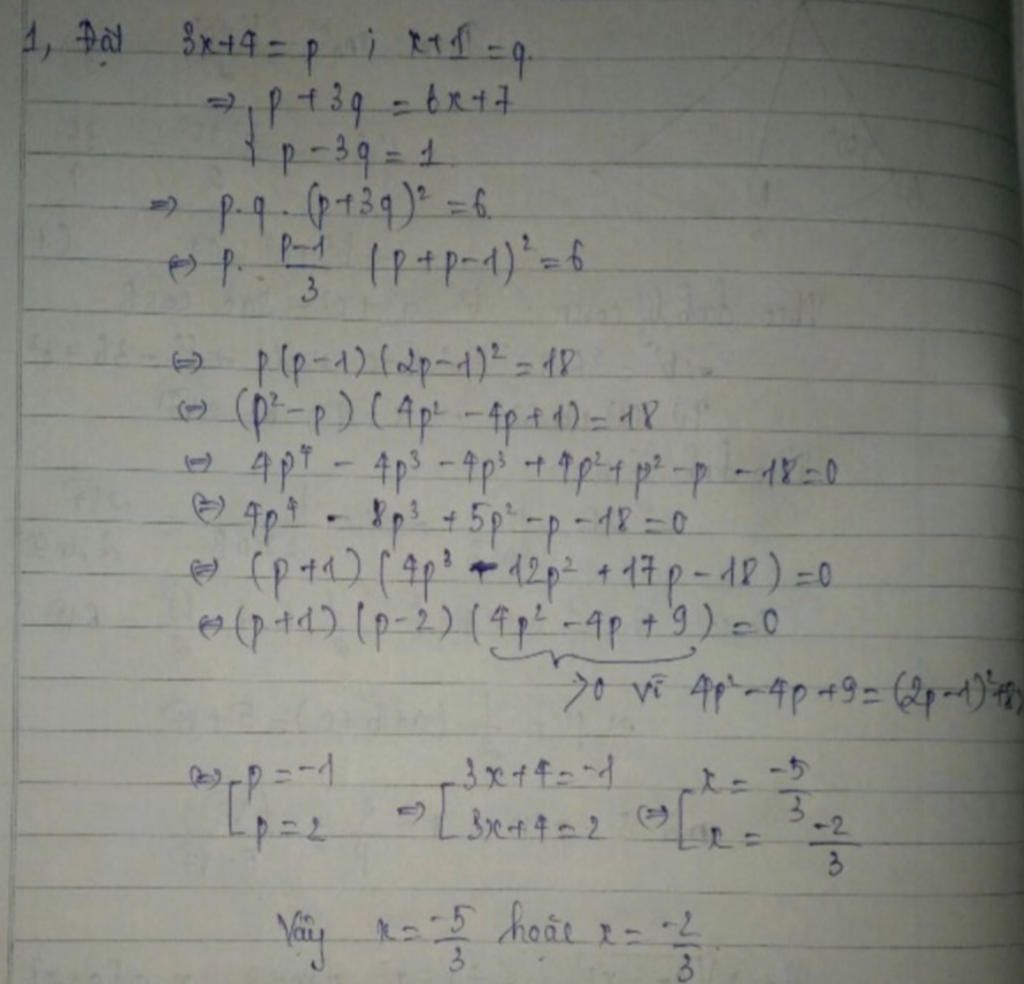 1, Đặt 3x+4 = p ; x+1 = q.
⇒ { p + 3q = 6x+7
p - 3q = 1
⇒ p.q.(p+3q)² = 6
⇔ p. (p-1)/3 (p+p-1)² = 6
⇔ p(p-1)(2p-1)² = 18
⇔ (p²-p)(4p² - 4p+1) = 18
⇔ 4p⁴ - 4p³ - 4p³ + 4p² + p² - p - 18 = 0
⇔ 4p⁴ - 8p³ + 5p² - p - 18 = 0
⇔ (p+1)(4p³ - 12p² + 17p - 18) = 0
⇔ (p+1)(p-2)(4p² - 4p + 9) = 0
>0 vì 4p² - 4p + 9 = (2p-1)²+8)
⇔ [ p = -1 ⇒ [ 3x+4 = -1 ⇔ [ x = -5/3
p = 2 3x+4 = 2 x = -2/3
Vậy x = -5/3 hoặc x = -2/3